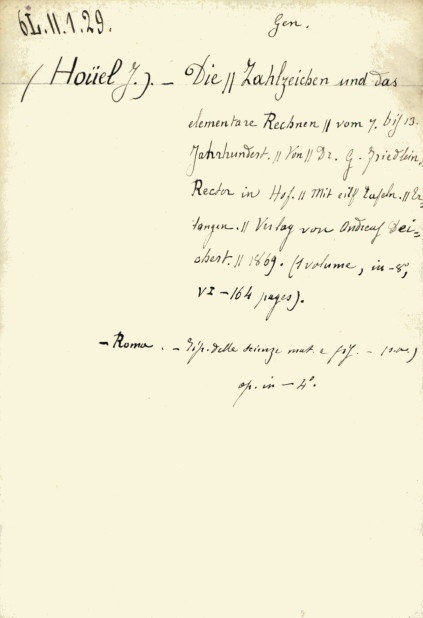 6L.11.1.29.
Gen.
(Hoüel J.). — Die || Zahlzeichen und das
elementare Rechnen || vom 7. bis 13.
Jahrhundert. || Von || Dr. G. Friedlein,
Rector in Hof. || Mit eilf Tafeln. || Er-
langen. || Verlag von Andreas Dei-
chert. || 1869. (1 volume, in-8°,
VI — 164 pages).
— Roma. — Tip. delle scienze mat. e fis. —
op. in — 4°.